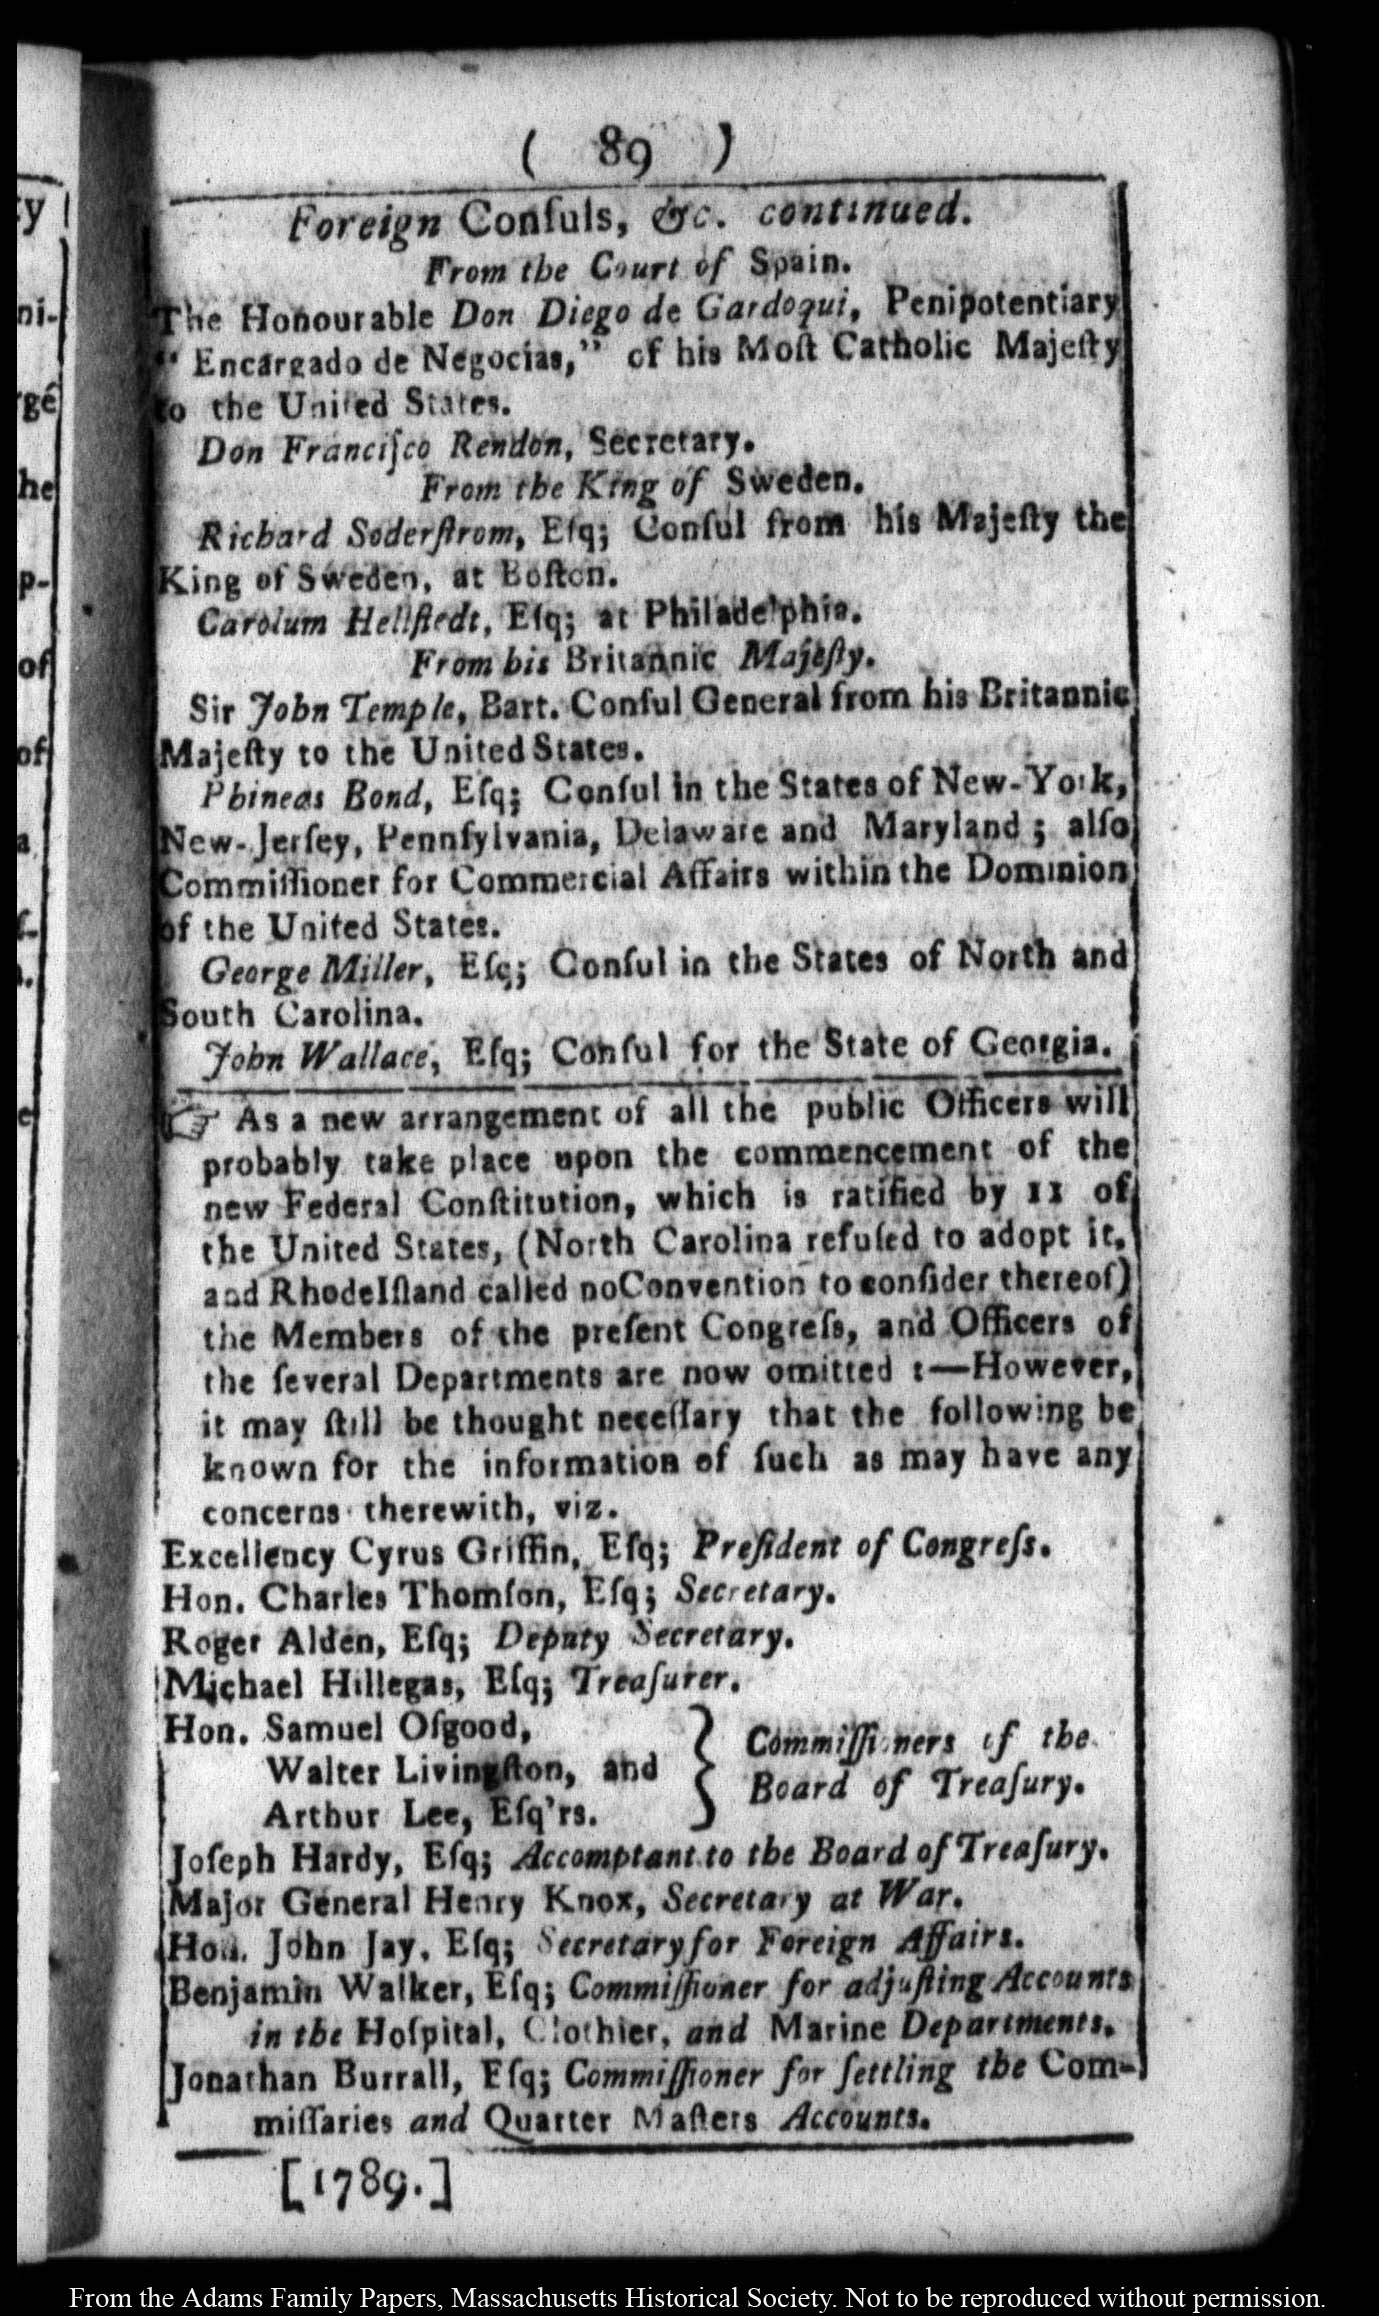 ( 89 )
Foreign Conſuls, &c. continued.
From the Court of Spain.
The Honourable Don Diego de Gardoqui, Penipotentiary
“ Encargado de Negocias,” of his Moſt Catholic Majeſty
to the United States.
Don Franciſco Rendon, Secretary.
From the King of Sweden.
Richard Soderſtrom, Eſq; Conſul from his Majeſty the
King of Sweden, at Boſton.
Carolum Hellſtedt, Eſq; at Philadelphia.
From his Britannic Majeſty.
Sir John Temple, Bart. Conſul General from his Britannic
Majeſty to the United States.
Phineas Bond, Eſq; Conſul in the States of New-York,
New-Jerſey, Pennſylvania, Delaware and Maryland ; alſo
Commiſſioner for Commercial Affairs within the Dominion
of the United States.
George Miller, Eſq; Conſul in the States of North and
South Carolina.
John Wallace, Eſq; Conſul for the State of Georgia.
☞ As a new arrangement of all the public Officers will
probably take place upon the commencement of the
new Federal Conſtitution, which is ratified by 11 of
the United States, (North Carolina refuſed to adopt it,
and Rhode Iſland called no Convention to conſider thereof)
the Members of the preſent Congreſs, and Officers of
the ſeveral Departments are now omitted :—However,
it may ſtill be thought neceſſary that the following be
known for the information of ſuch as may have any
concerns therewith, viz.
Excellency Cyrus Griffin, Eſq; Preſident of Congreſs.
Hon. Charles Thomſon, Eſq; Secretary.
Roger Alden, Eſq; Deputy Secretary.
Michael Hillegas, Eſq; Treaſurer.
Hon. Samuel Oſgood,
Walter Livingſton, and
Arthur Lee, Eſq'rs.
} Commiſſioners of the
Board of Treaſury.
Joſeph Hardy, Eſq; Accomptant to the Board of Treaſury.
Major General Henry Knox, Secretary at War.
Hon. John Jay, Eſq; Secretary for Foreign Affairs.
Benjamin Walker, Eſq; Commiſſioner for adjuſting Accounts
in the Hoſpital, Clothier, and Marine Departments.
Jonathan Burrall, Eſq; Commiſſioner for ſettling the Com-
miſſaries and Quarter Maſters Accounts.
[1789.]
From the Adams Family Papers, Massachusetts Historical Society. Not to be reproduced without permission.